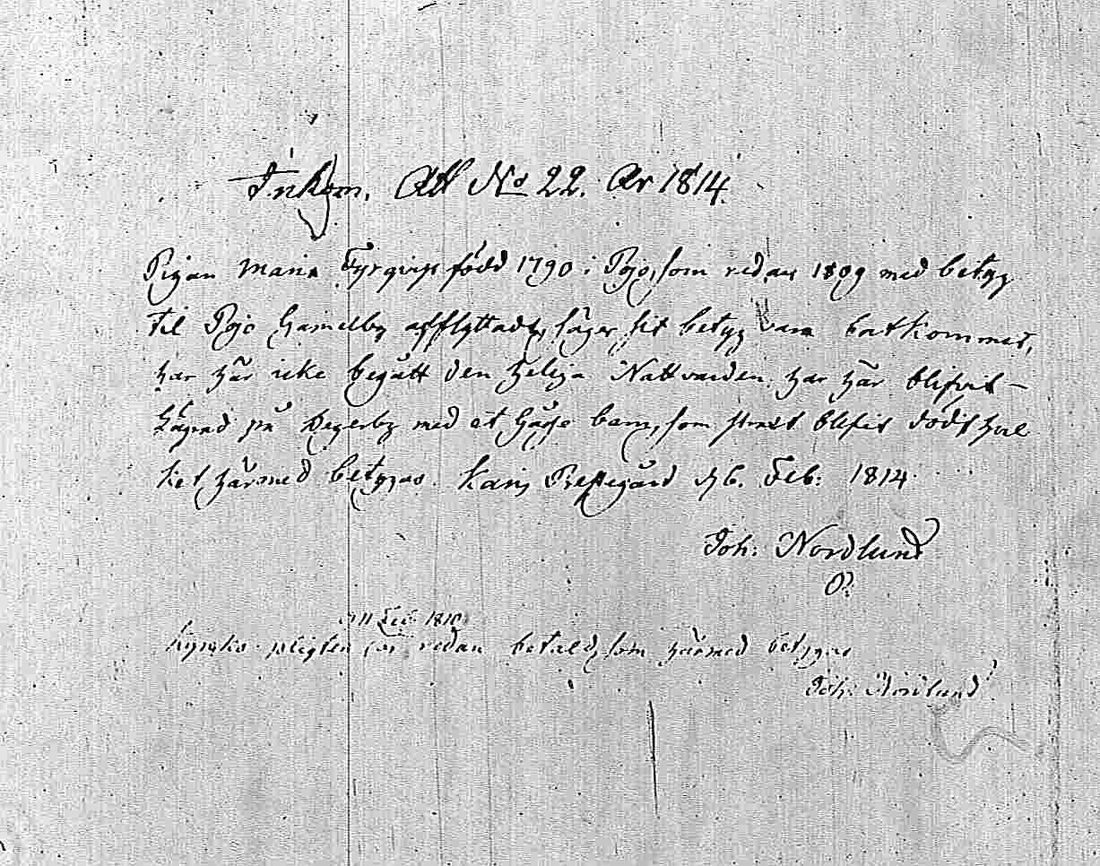 Inkom. Att No 22. År 1814.
Pigan Maria Fyrqvist född 1790 i Pojo, som redan 1809 med betyg
til Pojo Gamelby afflyttad, säger sit betyg vara bortkommet,
har här icke begått den helija Nattvarden, har här blifvit –
lägrad på Degerby med et Gåsse barn, som straxt blefvit dödt hvil
ket härmed betygas. Karis Prestgård d. 6. Feb: 1814.
Joh: Nordlund
P:
11 Feb 1810
Kyrko pligten är redan betald, som härmed betygas
Joh: Nordlund